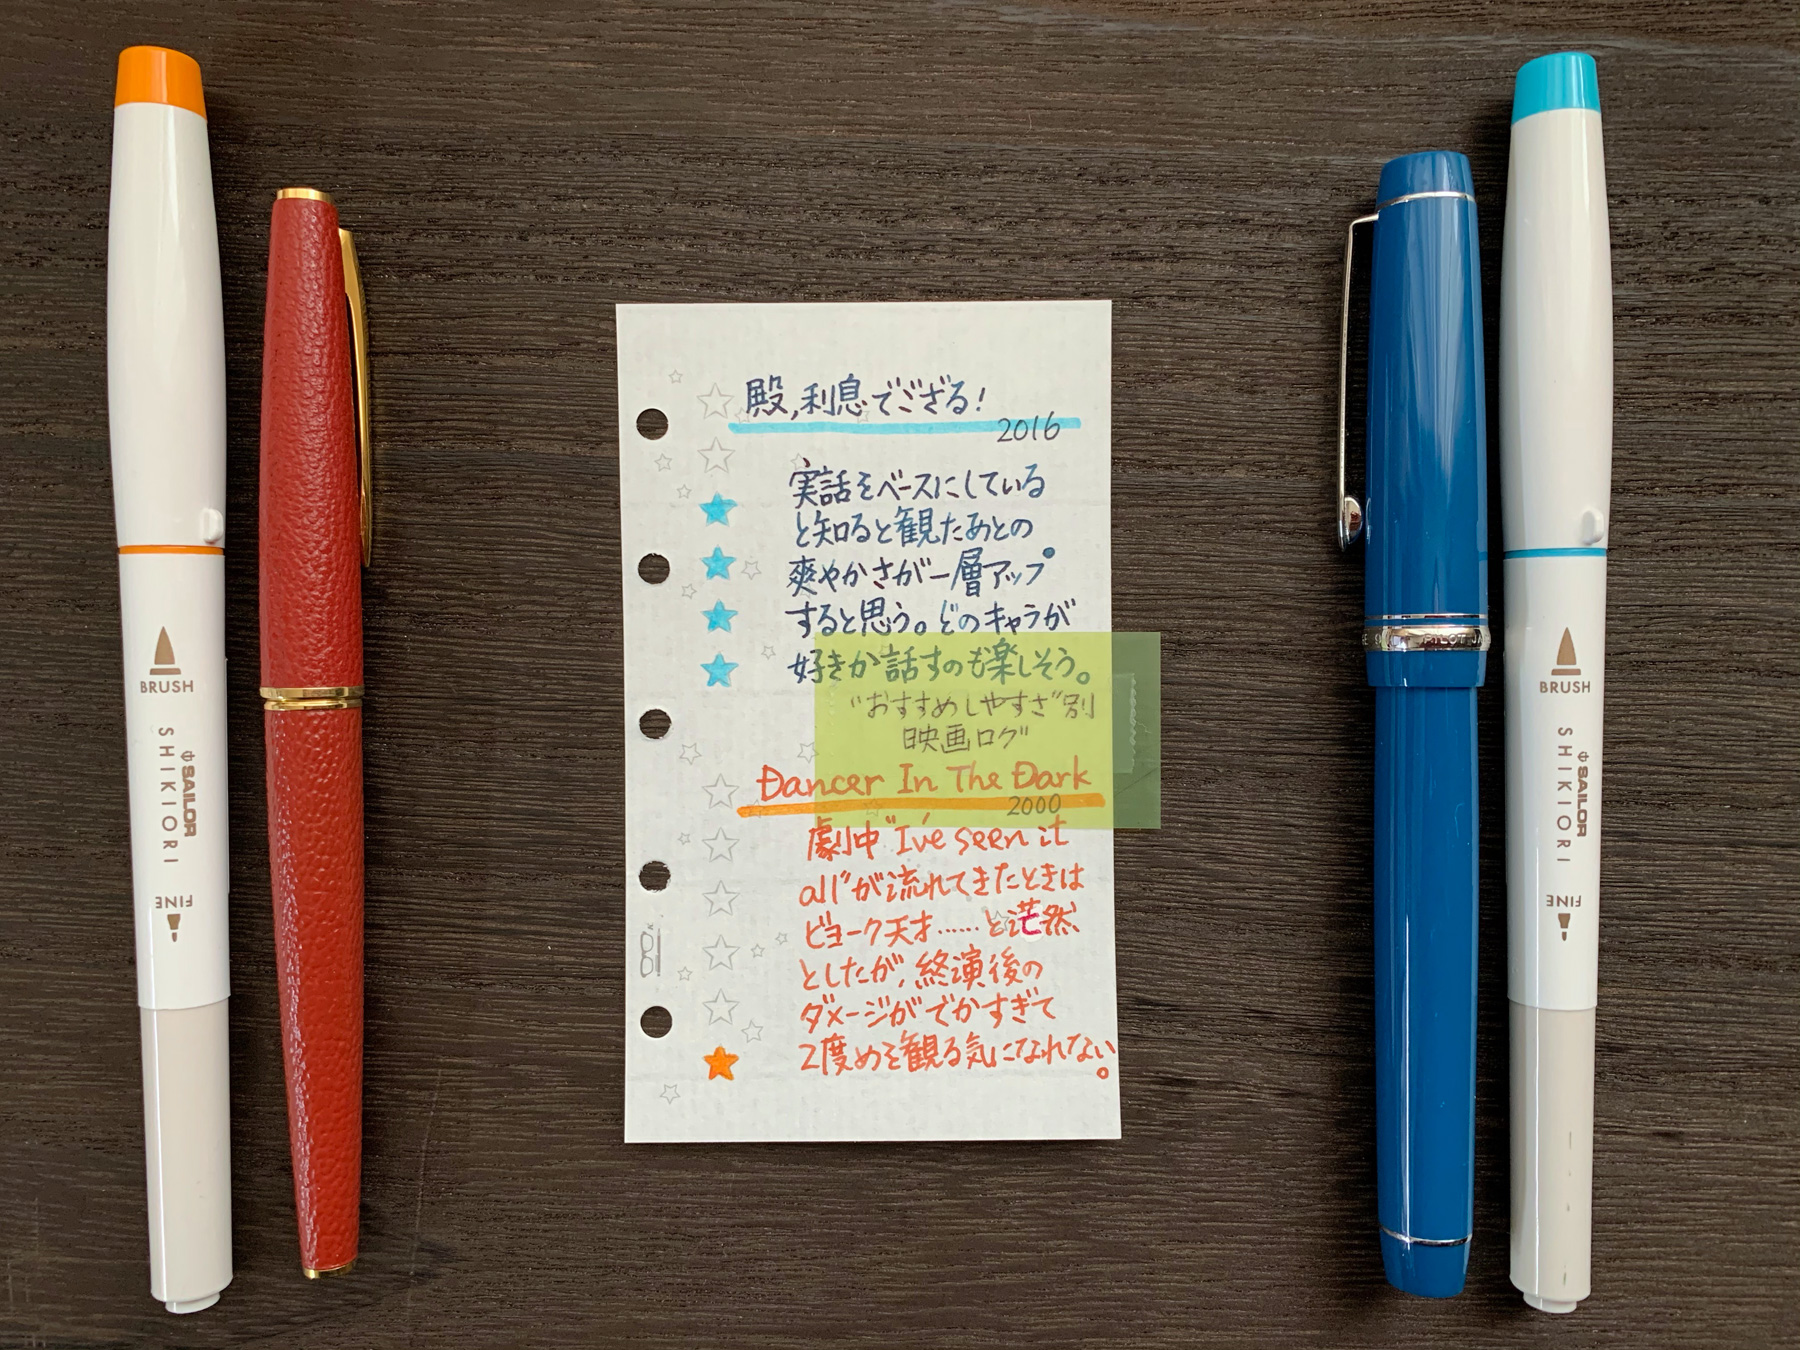 殿,利息でござる!
2016
実話をベースにしている
と知ると観たあとの
爽やかさが一層アップ
すると思う。どのキャラが
好きか話すのも楽しそう。
"おすすめしやすさ"別
映画ログ
Dancer In The Dark
2000
劇中"I've seen it
all"が流れてきたときは
ビョーク天才……と茫然
としたが,終演後の
ダメージがでかすぎて
2度めを観る気になれない
。
BRUSH
SAILOR
SHIKIORI
FINE
PILOT JA
BRUSH
SAILOR
SHIKIORI
FINE